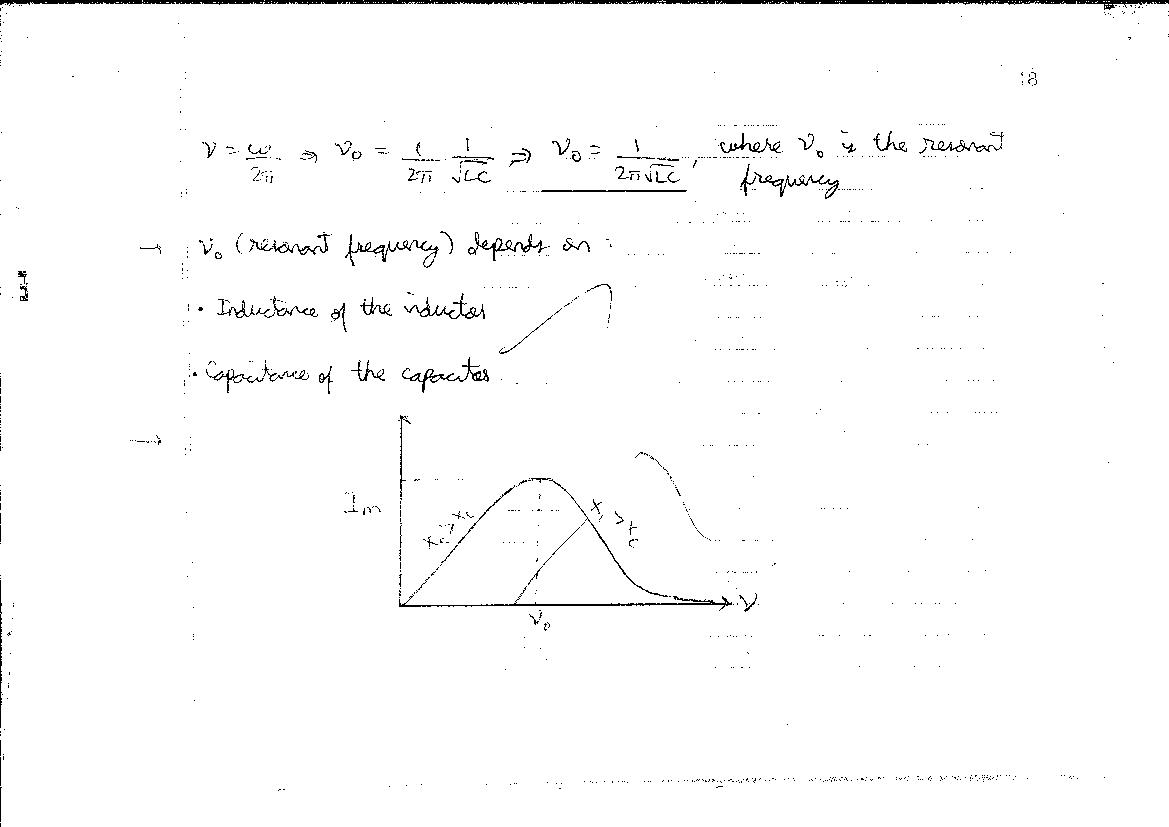 18
ν = ω/2π ⇒ ν₀ = 1/2π 1/√LC ⇒ ν₀ = 1/2π√LC, where ν₀ is the resonant
frequency
→ ν₀ (resonant frequency) depends on :
• Inductance of the inductor
• Capacitance of the capacitor
→
Iₘ
X_C > X_L
X_L > X_C
ν
ν₀